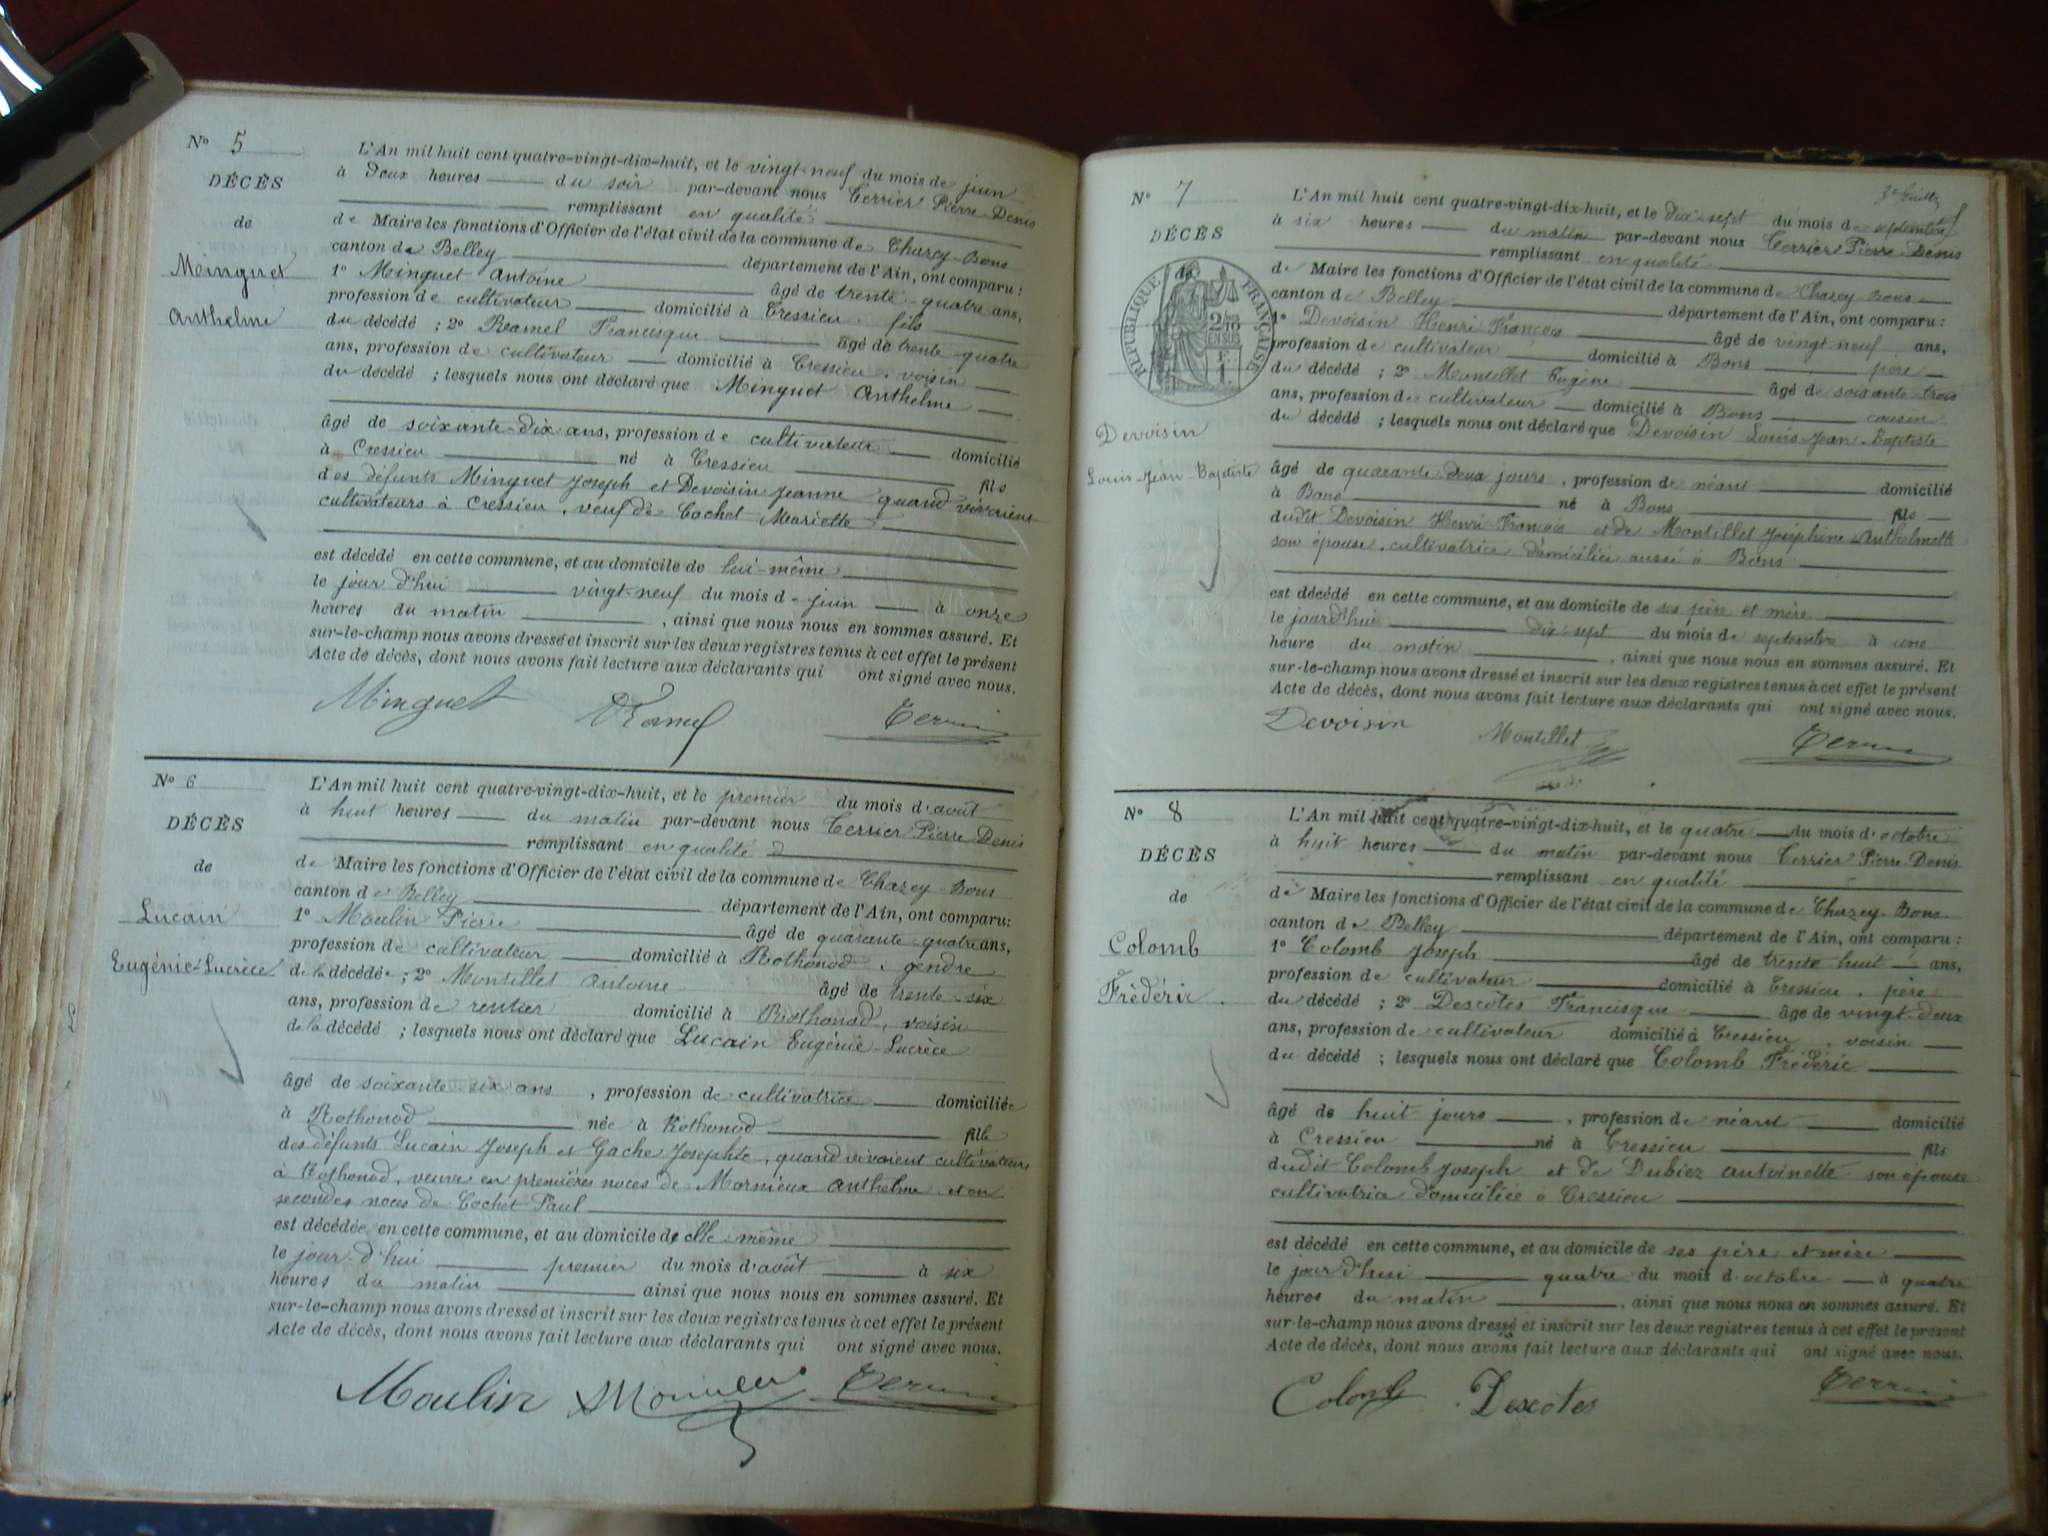 N° 5
DÉCÈS
de
Minguet
Anthelme
L'An mil huit cent quatre-vingt-dix-huit, et le vingt-neuf du mois de juin
à deux heures du soir par-devant nous Terrier Pierre Denis
remplissant en qualité
de Maire les fonctions d'Officier de l'état civil de la commune de Chazey-Bons
canton de Belley département de l'Ain, ont comparu :
1° Minguet Antoine âgé de trente-quatre ans,
profession de cultivateur domicilié à Cressieu, fils
du décédé ; 2° Ramel Francisque âgé de trente-quatre
ans, profession de cultivateur domicilié à Cressieu, voisin
du décédé ; lesquels nous ont déclaré que Minguet Anthelme
âgé de soixante-dix ans, profession de cultivateur domicilié
à Cressieu né à Cressieu fils
des défunts Minguet Joseph et Devoisin Jeanne quand vivaient
cultivateurs à Cressieu, veuf de Cochet Mariette
est décédé en cette commune, et au domicile de lui-même
le jour d'hui vingt-neuf du mois de juin à onze
heures du matin , ainsi que nous nous en sommes assuré. Et
sur-le-champ nous avons dressé et inscrit sur les deux registres tenus à cet effet le présent
Acte de décès, dont nous avons fait lecture aux déclarants qui ont signé avec nous.
Minguet Ramel Terrier
N° 6
DÉCÈS
de
Lucain
Eugénie-Lucrèce
L'An mil huit cent quatre-vingt-dix-huit, et le premier du mois d'août
à huit heures du matin par-devant nous Terrier Pierre Denis
remplissant en qualité
de Maire les fonctions d'Officier de l'état civil de la commune de Chazey-Bons
canton de Belley département de l'Ain, ont comparu :
1° Moulin Pierre âgé de quarante-quatre ans,
profession de cultivateur domicilié à Rothonod, gendre
de la décédée ; 2° Montillet Antoine âgé de trente-six
ans, profession de rentier domicilié à Rothonod, voisin
de la décédé ; lesquels nous ont déclaré que Lucain Eugénie-Lucrèce
âgé de soixante-six ans , profession de cultivatrice domiciliée
à Rothonod née à Rothonod fille
des défunts Lucain Joseph et Gache Josephte, quand vivaient cultivateurs
à Rothonod, veuve en premières noces de Mornieux Anthelme et en
secondes noces de Cochet Paul
est décédée en cette commune, et au domicile de elle-même
le jour d'hui premier du mois d'août à six
heures du matin ainsi que nous nous en sommes assuré. Et
sur-le-champ nous avons dressé et inscrit sur les deux registres tenus à cet effet le présent
Acte de décès, dont nous avons fait lecture aux déclarants qui ont signé avec nous.
Moulin Terrier
3e feuillet
N° 7
DÉCÈS
de
RÉPUBLIQUE FRANÇAISE
2/10 EN SUS
Devoisin
Louis-Jean-Baptiste
L'An mil huit cent quatre-vingt-dix-huit, et le dix-sept du mois de septembre
à six heures du matin par-devant nous Terrier Pierre Denis
remplissant en qualité
de Maire les fonctions d'Officier de l'état civil de la commune de Chazey-Bons
canton de Belley département de l'Ain, ont comparu :
1° Devoisin Henri François âgé de vingt neuf ans,
profession de cultivateur domicilié à Bons père
du décédé ; 2° Montillet Eugène âgé de soixante-trois
ans, profession de cultivateur domicilié à Bons cousin
du décédé ; lesquels nous ont déclaré que Devoisin Louis-Jean-Baptiste
âgé de quarante-deux jours , profession de néant domicilié
à Bons né à Bons fils
dudit Devoisin Henri-François et de Montillet Joséphine-Anthelmette
son épouse, cultivatrice domiciliée aussi à Bons
est décédé en cette commune, et au domicile de ses père et mère
le jour d'hui dix-sept du mois de septembre à une
heure du matin , ainsi que nous nous en sommes assuré. Et
sur-le-champ nous avons dressé et inscrit sur les deux registres tenus à cet effet le présent
Acte de décès, dont nous avons fait lecture aux déclarants qui ont signé avec nous.
Devoisin Montillet Terrier
N° 8
DÉCÈS
de
Colomb
Frédéric
L'An mil huit cent quatre-vingt-dix-huit, et le quatre du mois d'octobre
à huit heures du matin par-devant nous Terrier Pierre Denis
remplissant en qualité
de Maire les fonctions d'Officier de l'état civil de la commune de Chazey-Bons
canton de Belley département de l'Ain, ont comparu :
1° Colomb Joseph âgé de trente-huit ans,
profession de cultivateur domicilié à Cressieu, père
du décédé ; 2° Descôtes Francisque âgé de vingt-deux
ans, profession de cultivateur domicilié à Cressieu, voisin
du décédé ; lesquels nous ont déclaré que Colomb Frédéric
âgé de huit jours , profession de néant domicilié
à Cressieu né à Cressieu fils
dudit Colomb Joseph et de Dubiez Antoinette son épouse
cultivatrice domiciliée à Cressieu
est décédé en cette commune, et au domicile de ses père et mère
le jour d'hui quatre du mois d'octobre à quatre
heures du matin , ainsi que nous nous en sommes assuré. Et
sur-le-champ nous avons dressé et inscrit sur les deux registres tenus à cet effet le présent
Acte de décès, dont nous avons fait lecture aux déclarants qui ont signé avec nous.
Colomb Descotes Terrier